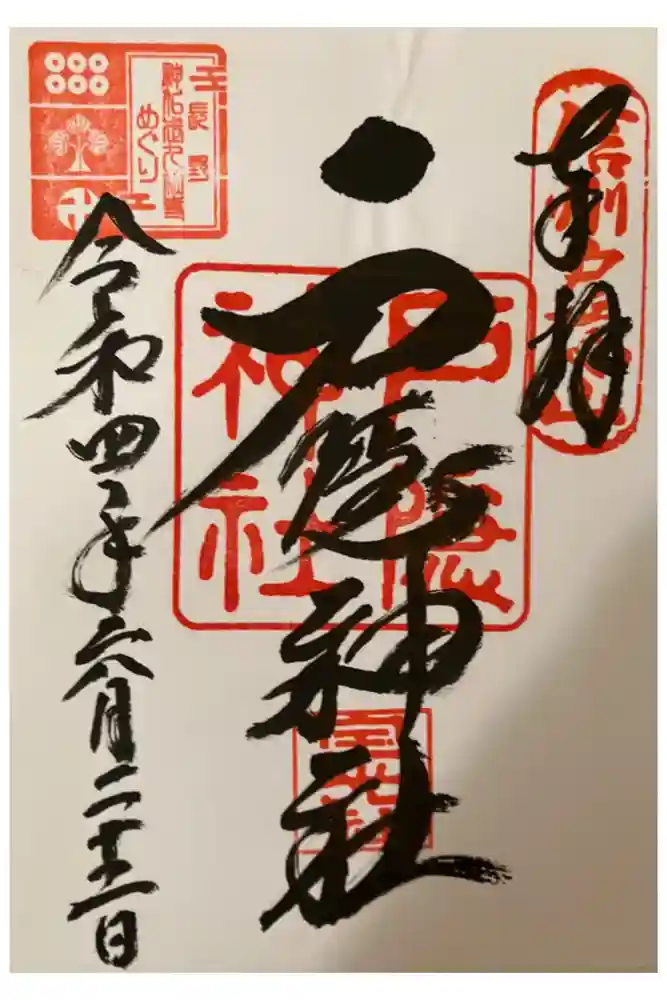 奉拝
信州戸隠山
戸隠神社
戸隠
神社
令和四年六月二十二日
長野
めぐり